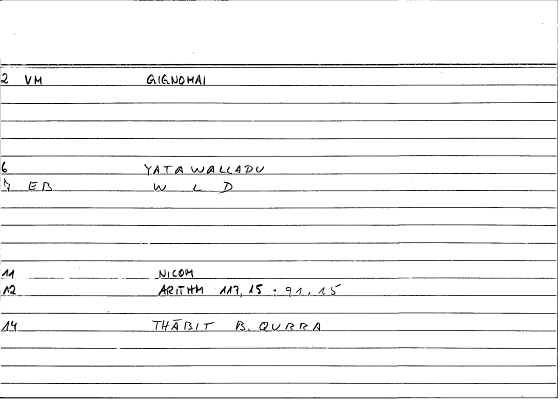 2 VM GIGNOMAI
6 YATAWALLADU
7 EB W L D
11 NICOM
12 ARITHM 117, 15 · 91, 15
14 THĀBIT B. QURRA